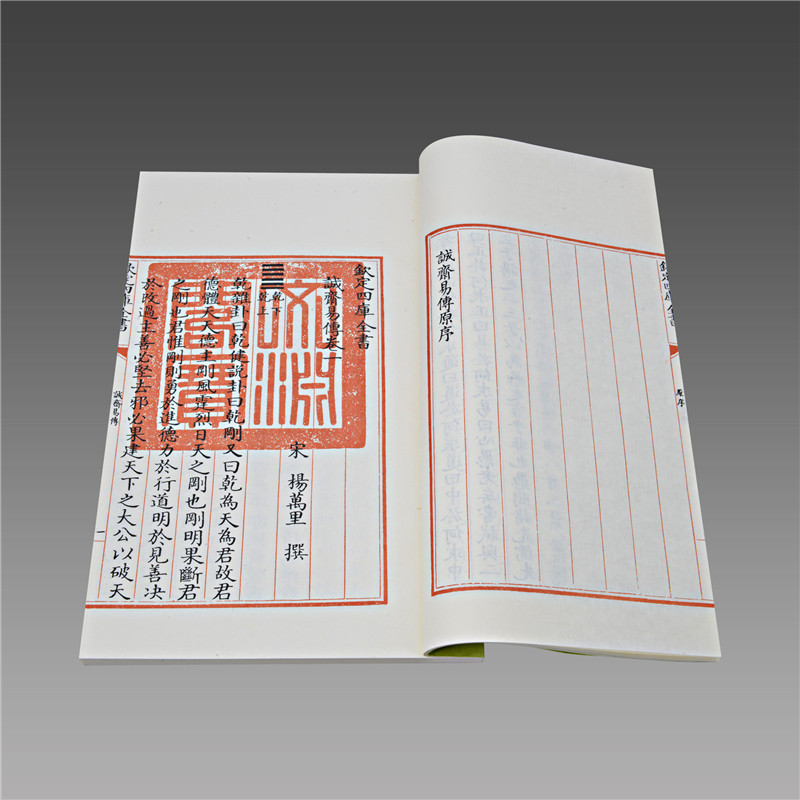 欽定四庫全書
原序
誠齋易傳原序
欽定四庫全書
誠齋易傳卷一
宋 楊萬里 撰
乾下
乾上
乾雜卦曰乾健說卦曰乾剛又曰乾為天為君故君
德體天天德主剛風霆烈日天之剛也剛明果斷君
之剛也君惟剛則勇於進德力於行道明於見善决
於改過主善必堅去邪必果建天下之大公以破天
欽定四庫全書
誠齋易傳
一
文淵